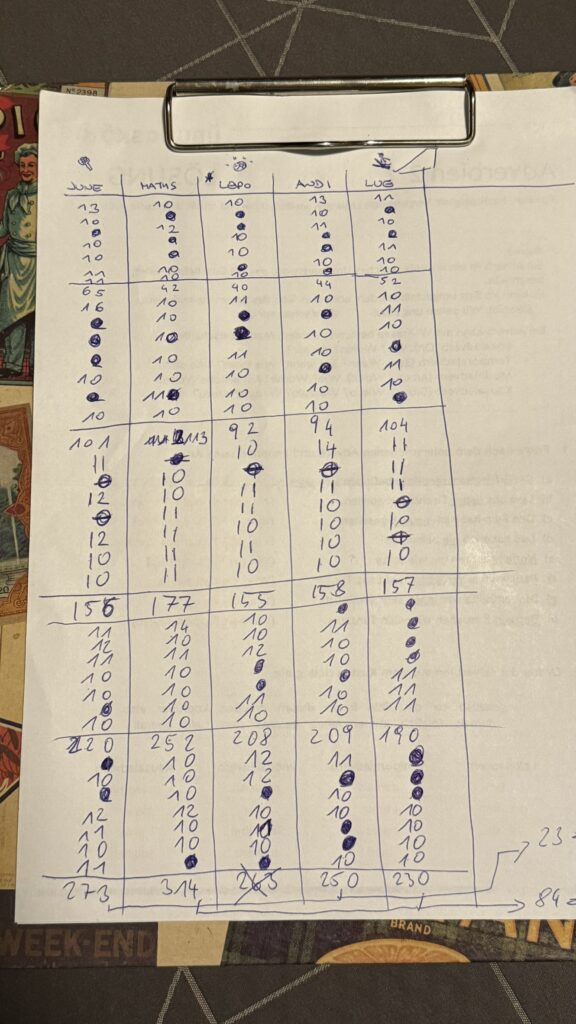 Nº 2398
JUNE MATHS LEPO ANDI LUE
13 10 10 13 11
10
12 11
10 10 10 11
10 10 10
11 10 10
11 10 10
65 42 40 44 52
16 10 11 10 10
10 11
10 10 10
10 11 11
10 10 10 10
10 10 10
10 10 10 10
101 113 92 94 104
11 10 14 11
10 11 11 11
12 10 11 10
11 11 10
12 11 10 10 10
10 11 11 10
10 11 10 10 10
156 177 155 158 157
11 14 10
12 10 10 11
11 10 12 10
10 10 10 11
10 10 10 11
10 11 10 11
10 10 10
220 252 208 209 190
10 12 11
10 10 12
10 10
12 12 10 10 10
11 10 10
10 10 10 10
11 10 10
273 314 263 250 230
23
84
WEEK-END
BRAND